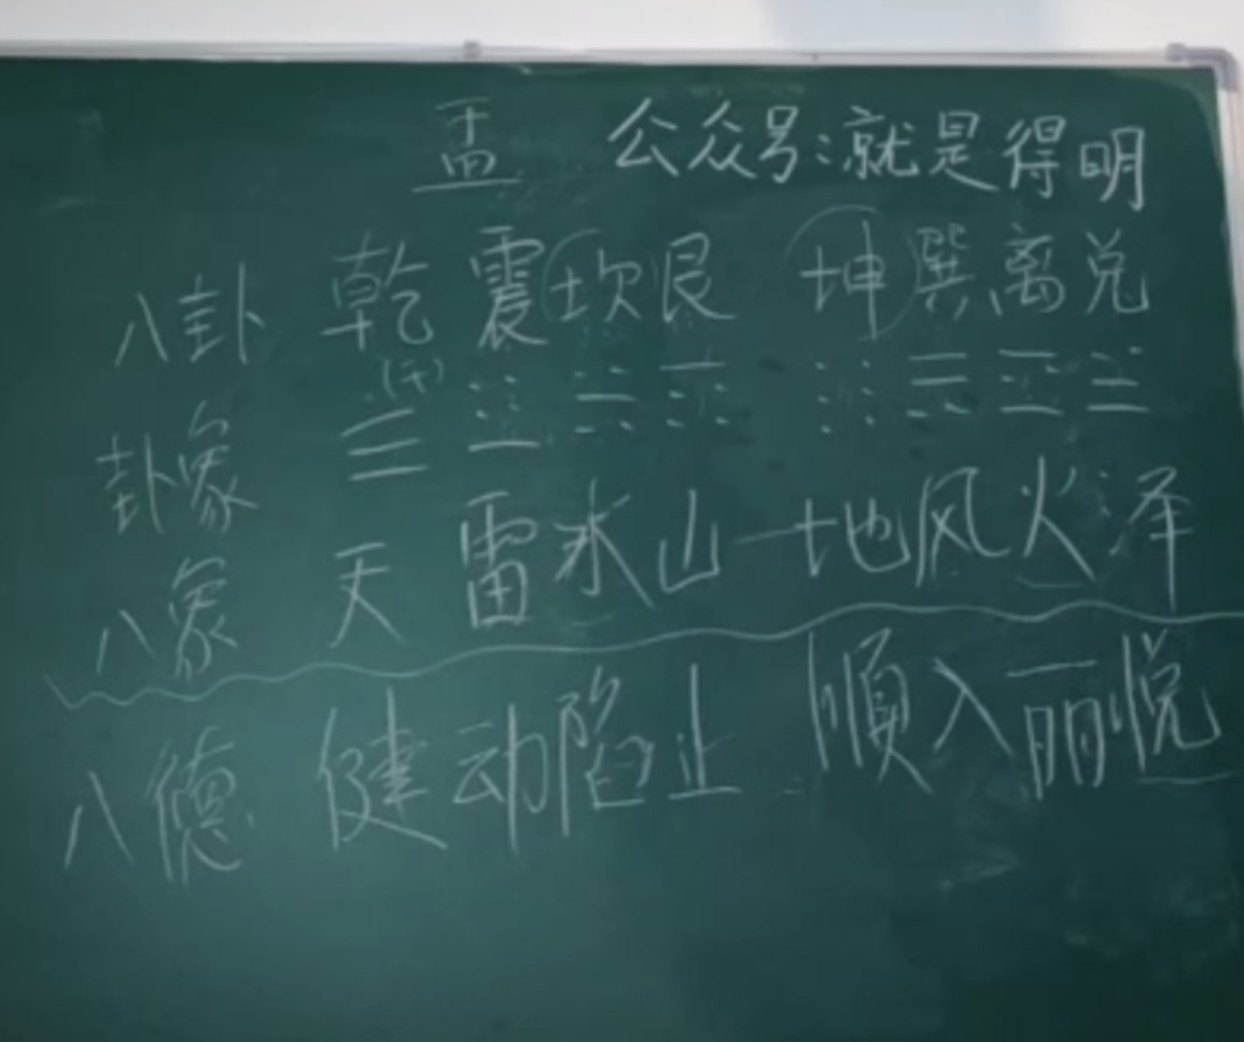 盂 公众号:就是得明
八卦 乾 震 坎 艮 坤 巽 离 兑
(干)
卦象 ☰ ☳ ☵ ☶ ☷ ☴ ☲ ☱
八象 天 雷 水 山 地 风 火 泽
八德 健 动 陷 止 顺 入 丽 悦